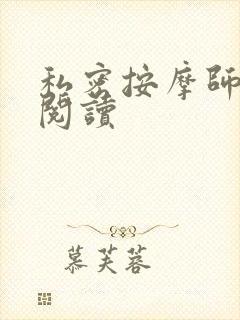 私密按摩師
閱讀
慕芙蓉